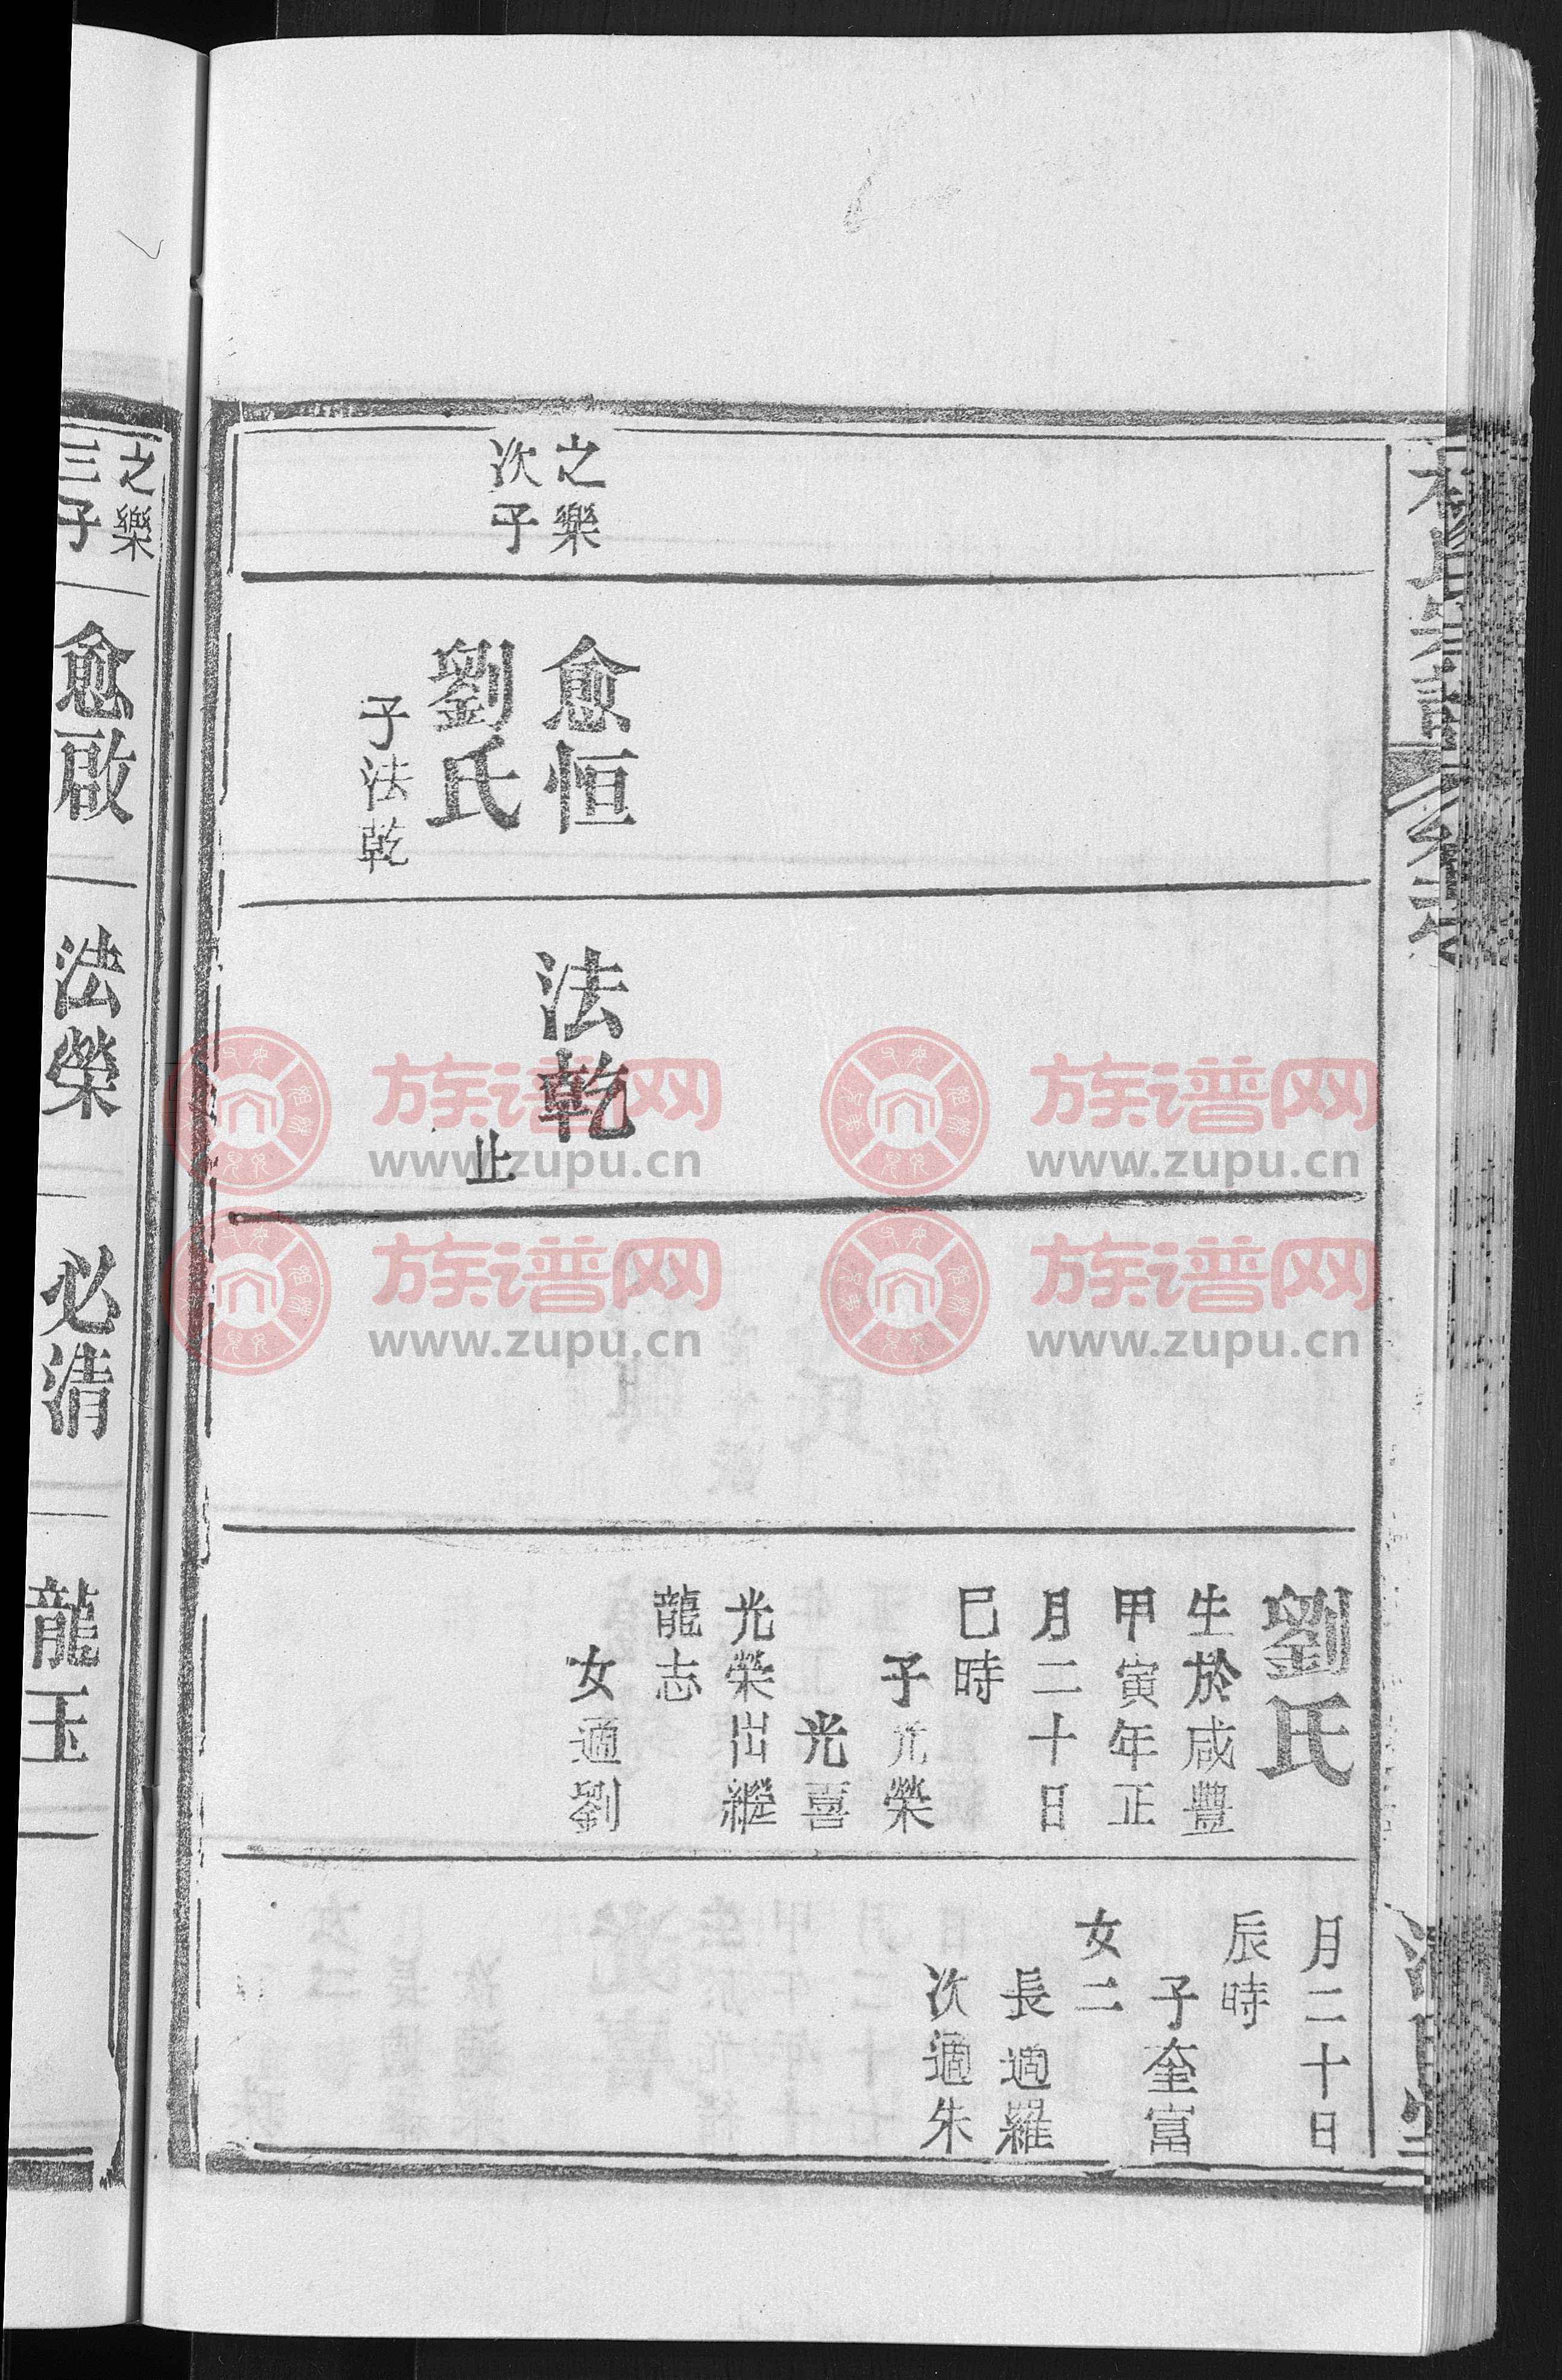 之樂
次子
愈恒
劉氏
子法乾
法乾
止
劉氏
生於咸豐
甲寅年正
月二十日
巳時
子光榮
光喜
光榮出繼
龍志
女適劉
月二十日
辰時
子奎富
女二
長適羅
次適朱
之樂
三子
愈啟
法榮
必清
龍玉
族谱网
www.zupu.cn
族谱网
www.zupu.cn
族谱网
www.zupu.cn
族谱网
www.zupu.cn